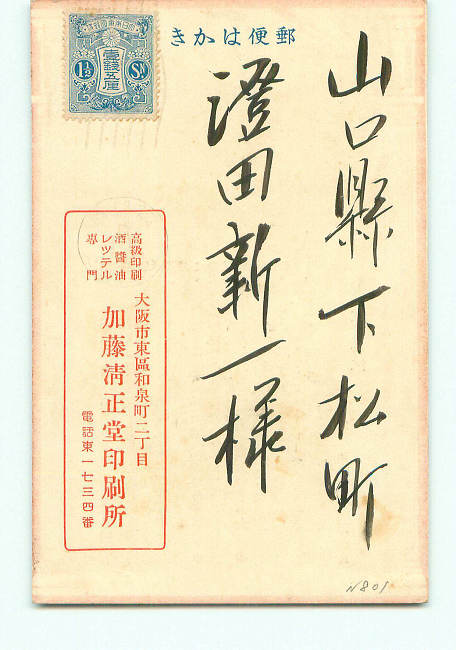 きかは便郵
壹錢五厘
1½ Sn
山口縣下松町
澄田新一様
高級印刷
酒醬油
レツテル
專門
大阪市東區和泉町二丁目
加藤淸正堂印刷所
電話東一七三四番
N801